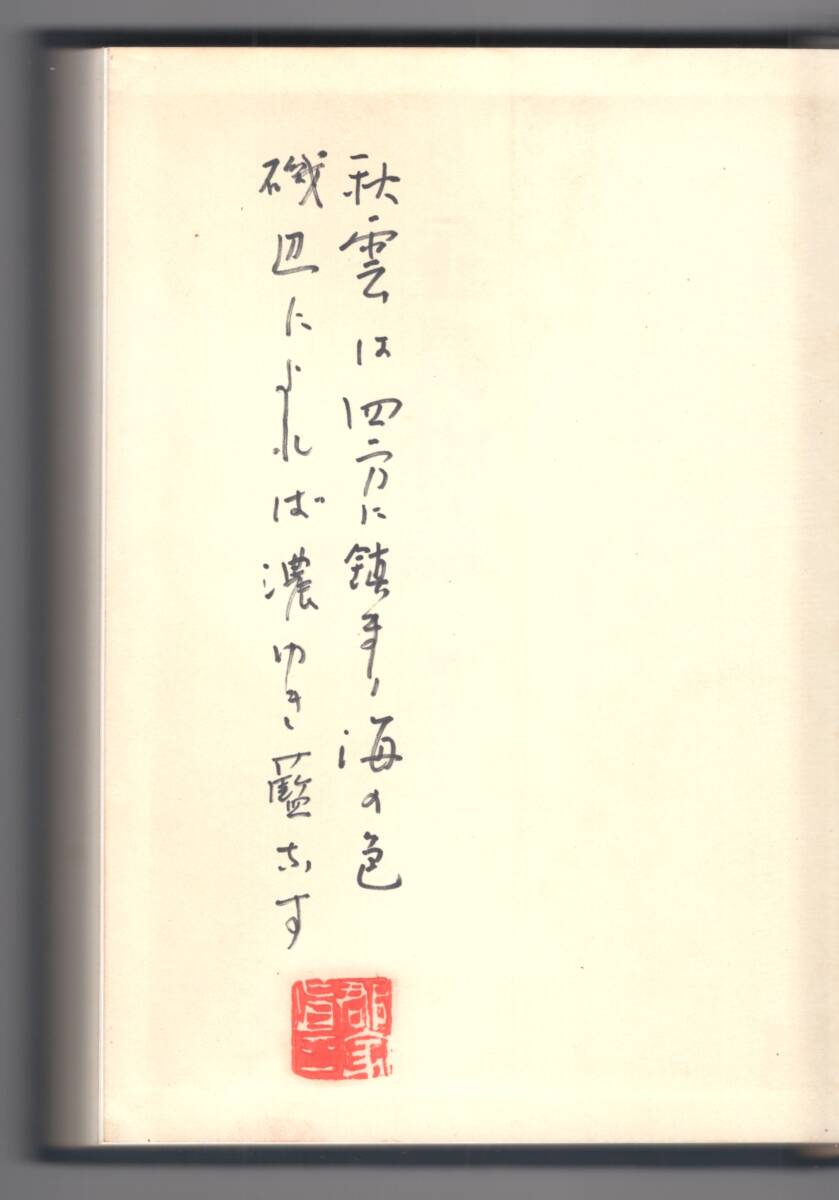 秋雲は四方に鎮まり海の色
磯辺によれば濃ゆき藍なす